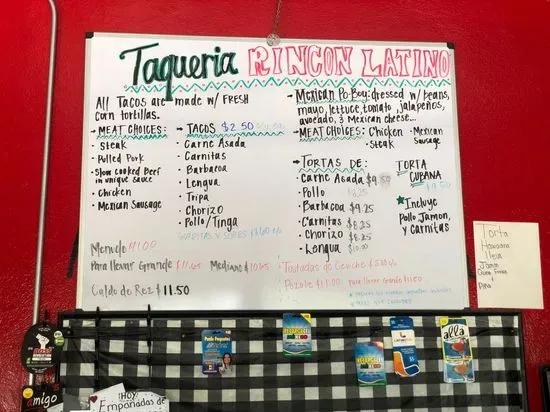 Taqueria RINCON LATINO
All Tacos are made w/ FRESH
corn tortillas.
MEAT CHOICES:
Steak
Pulled Pork
Slow Cooked Beef
in unique sauce
Chicken
Mexican Sausage
TACOS $2.50
Carne Asada
Carnitas
Barbacoa
Lengua
Tripa
Chorizo
Pollo/Tinga
Mexican Po-Boy: dressed w/ beans,
mayo, lettuce, tomato, jalapeños,
avocado, & Mexican cheese...
MEAT CHOICES: Chicken
Steak
Mexican
Sausage
TORTAS DE:
Carne Asada $9.50
Pollo
Barbacoa $9.25
Carnitas $8.25
Chorizo $8.25
Lengua $10.50
TORTA
CUBANA
$9.50
Incluye
Pollo, Jamon,
y Carnitas
Menudo
Para llevar Grande $11.65 Mediano
Caldo de Rez $11.50
Tostadas de Ceviche
Pozole $11.00 para llevar Grande
Torta
Hawaiana
Jamon
Piña
amigo
¡HOY!
Empanadas de
alla